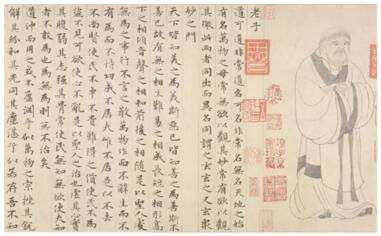 老子
道可道非常道名可名非常名無名天地之始
有名萬物之母常無欲以觀其妙常有欲以觀
其徼此兩者同出而異名同謂之玄玄之又玄衆
妙之門
天下皆知美之為美斯惡已皆知善之為善斯不
善已故有無之相生難易之相成長短之相形高
下之相傾音聲之相和前後之相隨是以聖人處
無為之事行不言之教萬物作而不辭生而不
有為而不恃功成不居夫惟不居是以不去
不尚賢使民不爭不貴難得之貨使民不為
盜不見可欲使心不亂是以聖人之治也虛其心實
其腹弱其志強其骨常使民無知無欲使夫知
者不敢為也為無為則無不治矣
道沖而用之或不盈淵乎似萬物之宗挫其銳
解其紛和其光同其塵湛乎似或存吾不知